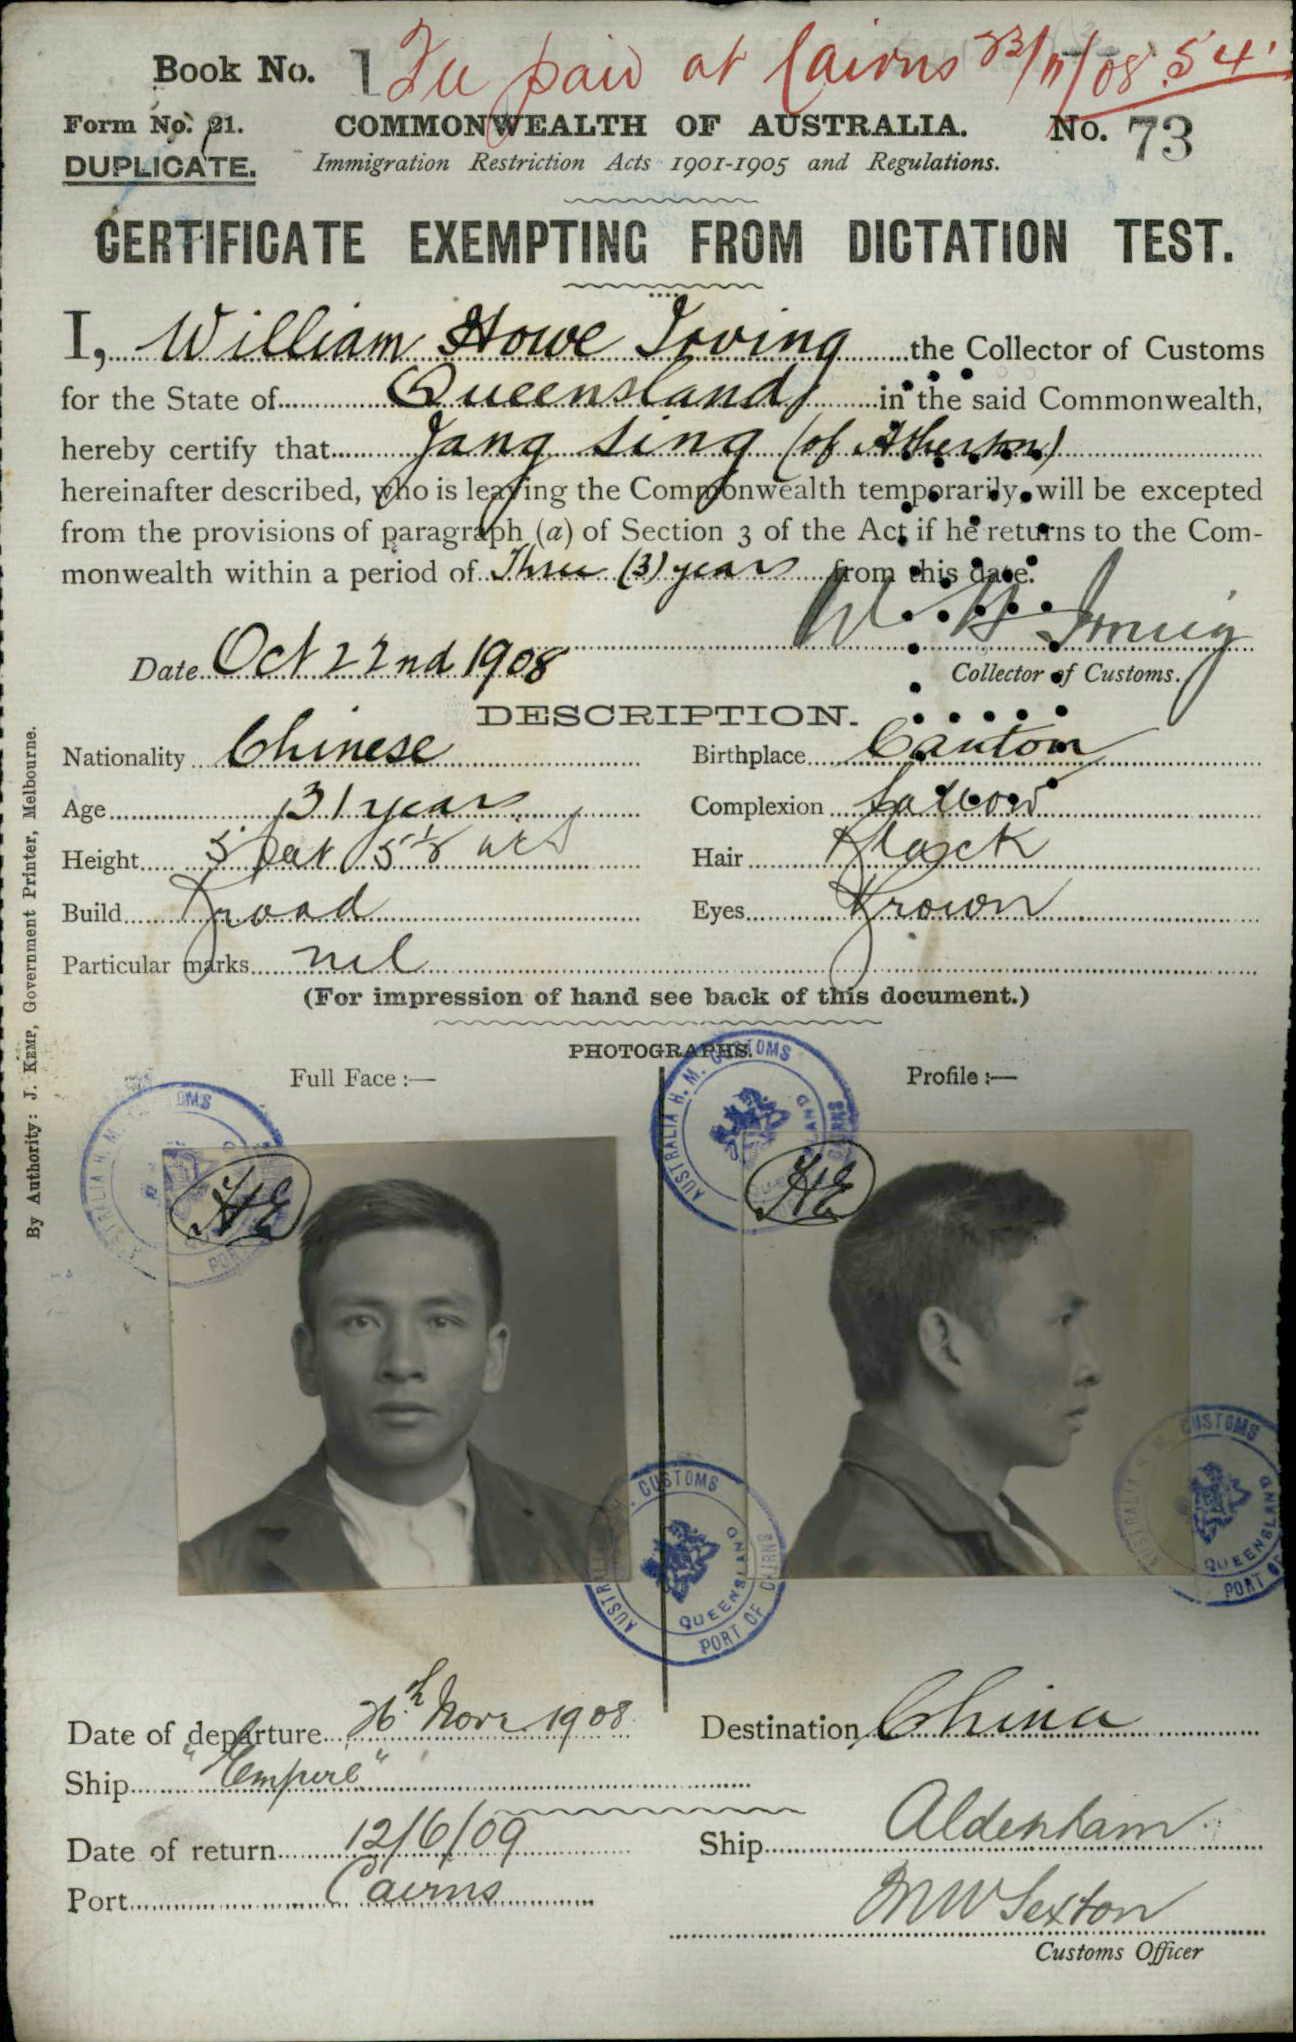 Book No. 1
Fee paid at Cairns 23/11/08 54
Form No. 21.
COMMONWEALTH OF AUSTRALIA.
No. 73
DUPLICATE.
Immigration Restriction Acts 1901-1905 and Regulations.
CERTIFICATE EXEMPTING FROM DICTATION TEST.
I, William Howe Irving the Collector of Customs
for the State of Queensland in the said Commonwealth,
hereby certify that Jang Sing (of Atherton)
hereinafter described, who is leaving the Commonwealth temporarily, will be excepted
from the provisions of paragraph (a) of Section 3 of the Act if he returns to the Com-
monwealth within a period of Three (3) years from this date.
W H Irving
Date Oct 22nd 1908
Collector of Customs.
DESCRIPTION.
Nationality Chinese
Birthplace Canton
Age 31 years
Complexion Sallow
Height 5 feet 5½ ins
Hair Black
Build Broad
Eyes Brown
Particular marks nil
(For impression of hand see back of this document.)
PHOTOGRAPHS.
Full Face :—
Profile :—
AUSTRALIA H. M. CUSTOMS
QUEENSLAND
PORT OF CAIRNS
HE
HE
AUSTRALIA H. M. CUSTOMS
QUEENSLAND
PORT OF CAIRNS
Date of departure 26th Novr 1908
Destination China
Ship "Empire"
Date of return 12/6/09
Ship Aldenham
Port Cairns
M W Sexton
Customs Officer
By Authority: J. KEMP, Government Printer, Melbourne.